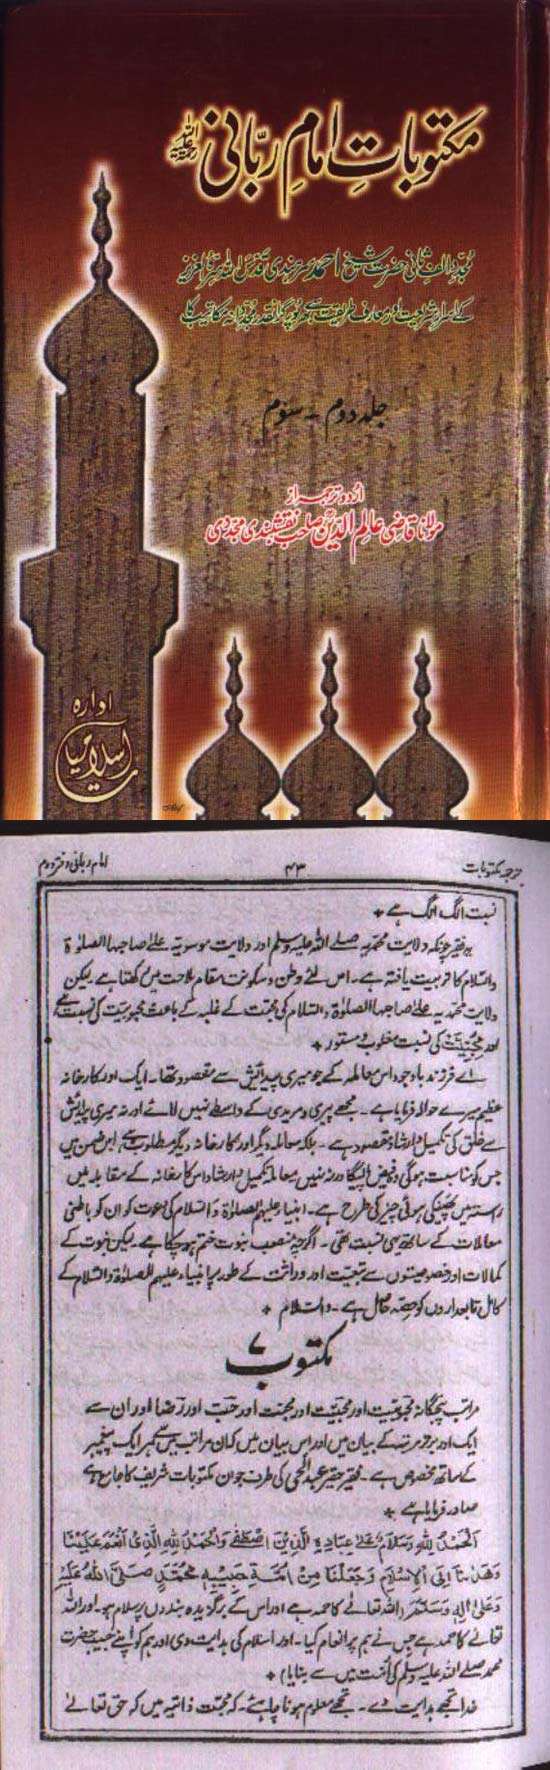 مکتوباتِ امامِ ربّانی رحمۃ اللہ علیہ
مجدد الف ثانی حضرت شیخ احمد سرہندی قدس اللہ سرہ العزیز
کے اسرارِ شریعت اور معارف طریقت سے بھرپور گرانقدر مجددانہ مکاتیب کا
جلد دوم - سوم
اردو ترجمہ از
مولانا قاضی عالم الدین صاحب نقشبندی مجددی
ادارہ
اسلامیات
ترجمہ مکتوبات
۴۳
امام ربانی دفتر دوم
نسبت الگ الگ ہے *
یہ فقیر چونکہ ولایت محمدیہ صلے اللہ علیہ وسلم اور ولایت موسویہ علےٰ صاحبہا الصلوٰۃ
والسّلام کا تربیت یافتہ ہے۔ اس لئے وطن و سکونت مقام ملاحت میں رکھتا ہے لیکن
ولایت محمدیہ علےٰ صاحبہا الصلوٰۃ والسلام کی محبت کے غلبہ کے باعث محبوبیت کی نسبت ہے
اور محبیّت کی نسبت مغلوب و مستور *
اے فرزند باوجود اس معاملہ کے جو میری پیدائش سے مقصود تھا۔ ایک اور کارخانہ
عظیم میرے حوالہ فرمایا ہے۔ مجھے پیری و مریدی کے واسطے نہیں لائے اور نہ میری پیدائش
سے خلق کی تکمیل و ارشاد مقصود ہے۔ بلکہ معاملہ دیگر اور کارخانہ دیگر مطلوب ہے۔ اس ضمن میں
جس کو مناسبت ہوگی وہ فیض پالیگا ورنہ نہیں معاملہ تکمیل و ارشاد اس کارخانہ کے مقابلہ میں
راستہ میں پھینکی ہوئی چیز کی طرح ہے۔ انبیاء علیہم الصلوٰۃ والسلام کی دعوت کو ان کو باطنی
معاملات کے ساتھ یہی نسبت تھی۔ اگرچہ منصب نبوت ختم ہو چکا ہے۔ لیکن نبوت کے
کمالات اور خصوصیتوں سے تبعیت اور وراثت کے طور پر انبیاء علیہم الصلوٰۃ والسلام کے
کامل تابعداروں کو حصّہ حاصل ہے۔ والسلام *
مکتوب ۷
مراتب پنجگانہ محبوبیت اور محبیّت اور محبت اور حُب اور رضا اور ان سے
ایک اور برتر مرتبہ کے بیان میں اور اس بیان میں کہ ان مراتب میں سے ہر ایک پیغمبر
کے ساتھ مخصوص ہے۔ فقیر حقیر عبدالحی کی طرف جو ان مکتوبات شریف کا جامع ہے
صادر فرمایا ہے *
اَلْحَمْدُ لِلّٰهِ وَسَلَامٌ عَلٰی عِبَادِهِ الَّذِیْنَ اصْطَفٰی وَالْحَمْدُ لِلّٰهِ الَّذِیْ اَنْعَمَ عَلَیْنَا
وَهَدٰىنَا اِلَى الْاِسْلَامِ وَجَعَلَنَا مِنْ اُمَّةِ حَبِیْبِهٖ مُحَمَّدٍ صَلَّی اللّٰهُ عَلَیْهِ
وَعَلٰی اٰلِهٖ وَسَلَّمَ (اللہ تعالےٰ کا حمد ہے اور اس کے برگزیدہ بندوں پر سلام ہو۔ اور اللہ
تعالےٰ کا حمد ہے جس نے ہم پر انعام کیا۔ اور اسلام کی ہدایت دی اور ہم کو اپنے حبیب حضرت
محمد صلے اللہ علیہ وسلم کی اُمت میں سے بنایا) *
خدا تجھے ہدایت دے۔ تجھے معلوم ہونا چاہئے۔ کہ محبت ذاتیہ میں کہ حق تعالےٰ